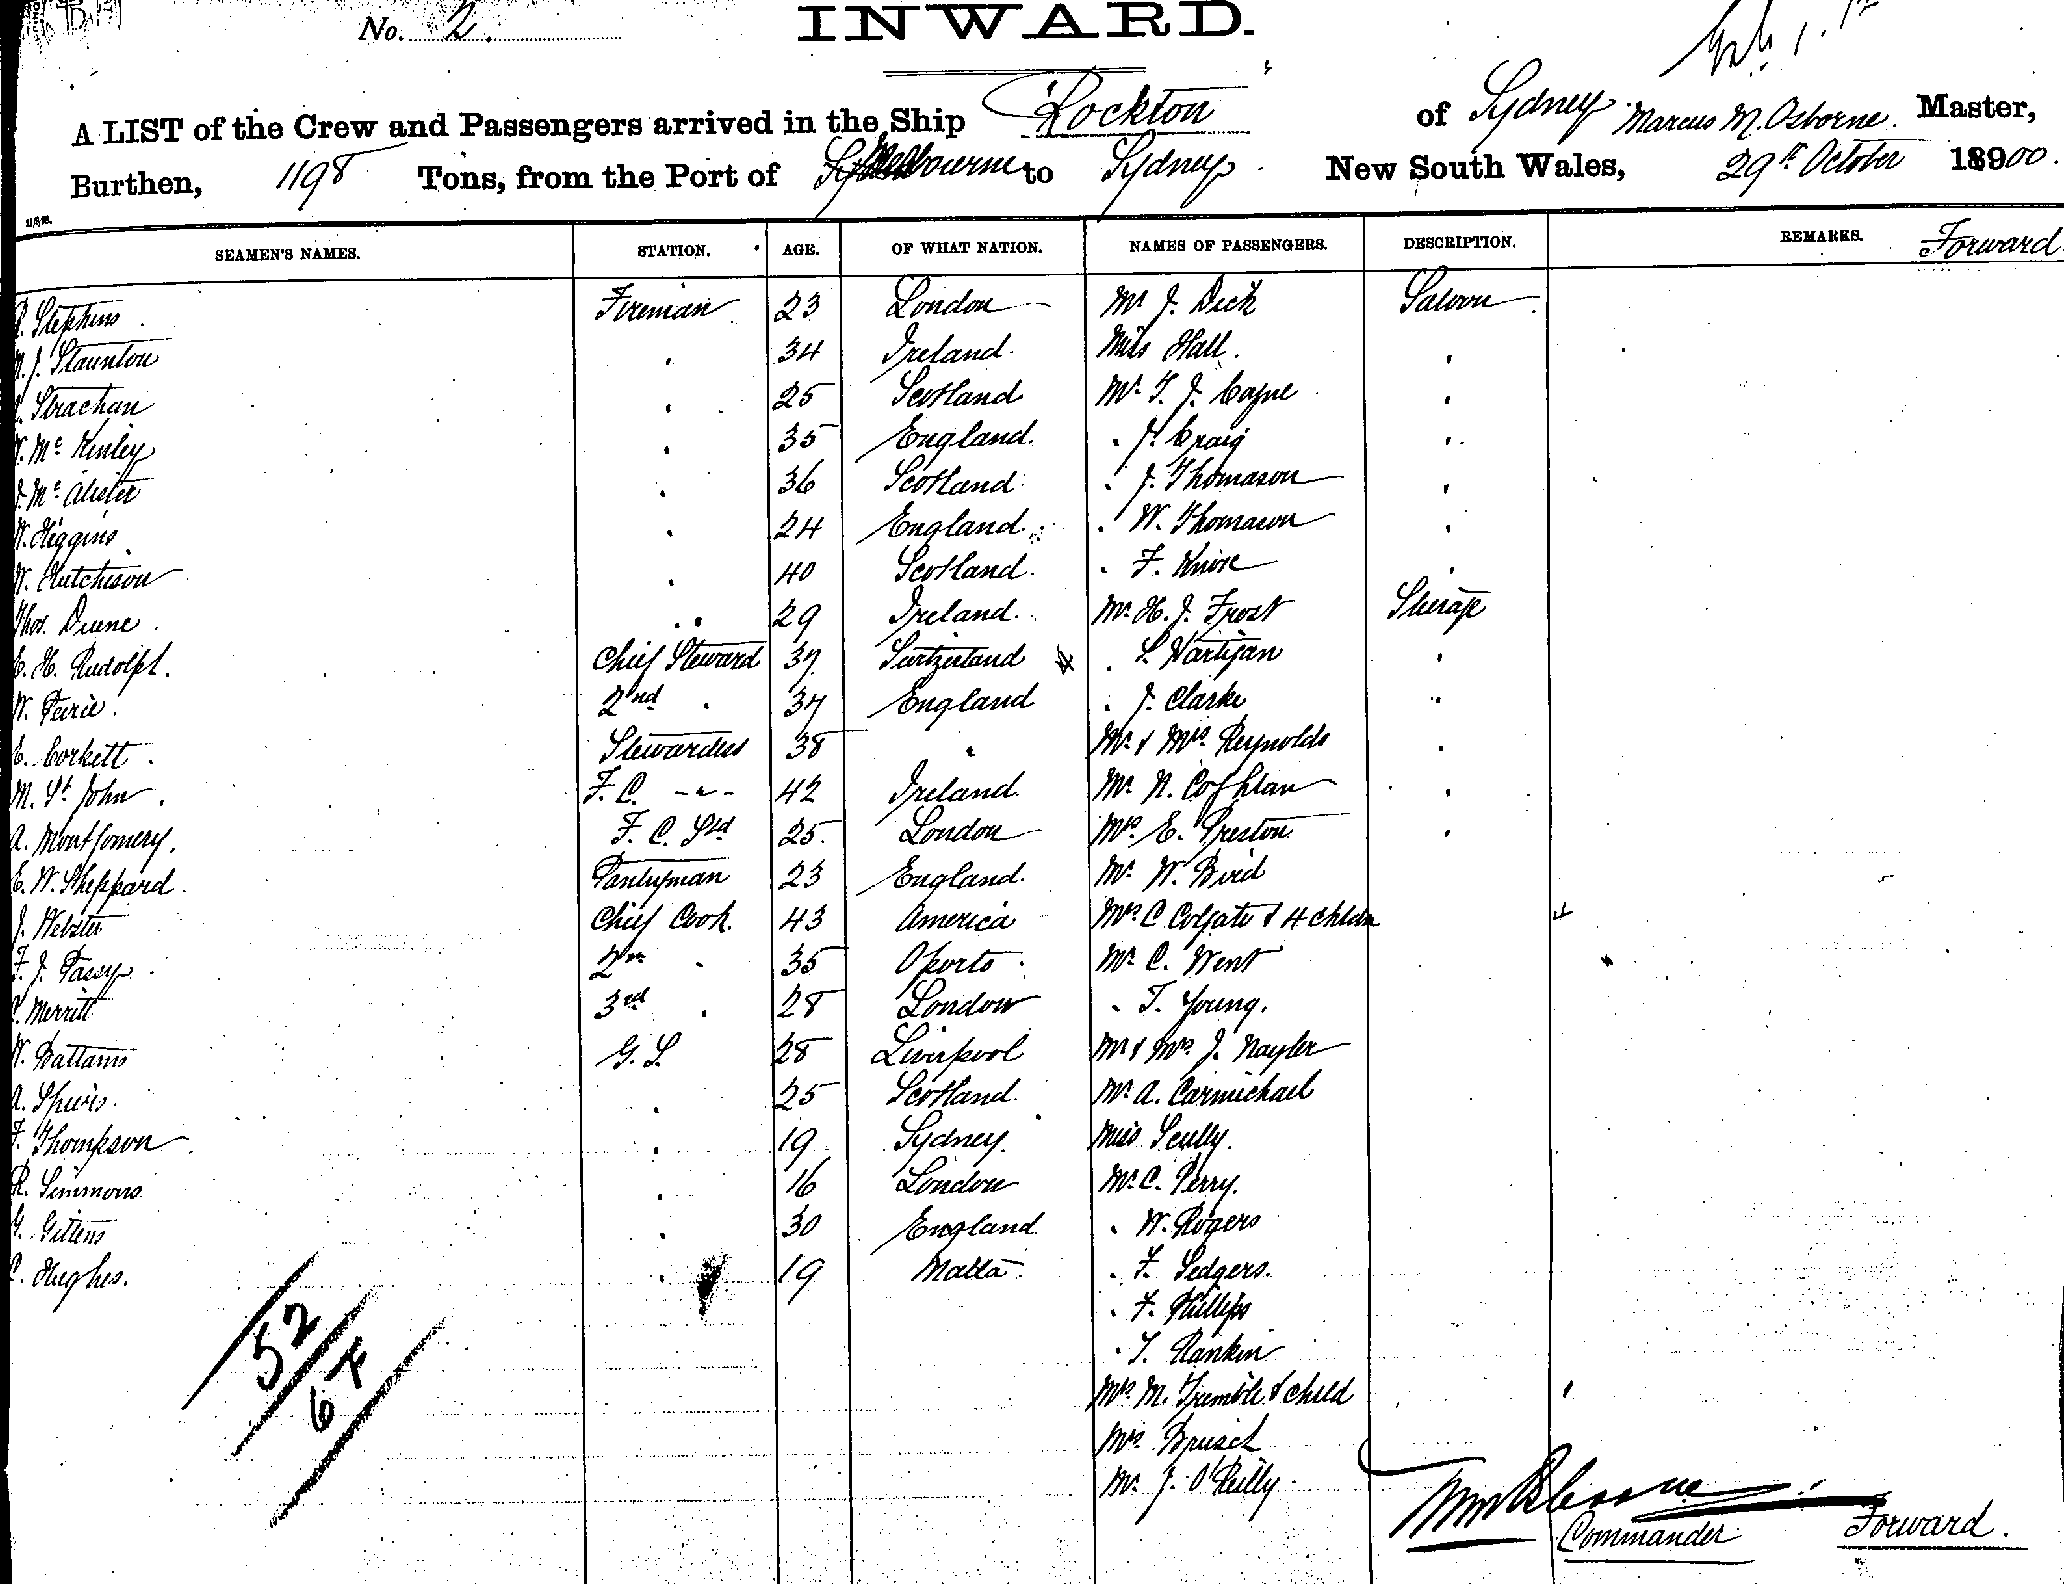 No. 2.
INWARD.
A LIST of the Crew and Passengers arrived in the Ship "Rockton" of Sydney Marcus M. Osborne. Master,
Burthen, 1198 Tons, from the Port of Melbourne to Sydney. New South Wales, 29th October 18900.
SEAMEN'S NAMES. STATION. AGE. OF WHAT NATION. NAMES OF PASSENGERS. DESCRIPTION. REMARKS. Forward
Stephens Fireman 23 London Mr J. Dick Saloon
J. Staunton 34 Ireland Miss Hall.
Strachan 25 Scotland Mr T. J. Coyne
Mc Kinley 35 England. Craig
Mc Alister 36 Scotland J. Thomason
W. Higgins 24 England. W. Thomason
W. Hutchison 40 Scotland. F. Knox
Thos. Deene 29 Ireland. Mr H. J. Frost Steerage
E. H. Rudolph. Chief Steward 37 Switzerland L. Hartigan
W. Peirie. 2nd " 37 England J. Clarke
E. Corkett. Stewardess 38 " Mr & Mrs Reynolds
M. St. John. F. C. -"- 42 Ireland. Mr N. Coghlan
A. Montgomery. F. C. Std 25 London Mrs E. Preston
E. W. Sheppard. Pantryman 23 England. Mr W. Bird
J. Webster Chief Cook. 43 America Mrs C Colgate & 4 chldn
F. J. Tassy 2nd " 35 Oporto Mr C. Went
Merritt 3rd " 28 London " T. Young.
W. Battams G. S. 28 Liverpool Mr & Mrs J. Nayler
A. Speirs. " 25 Scotland. Mr A. Carmichael
F. Thompson " 19 Sydney. Miss Scully.
R. Simmons " 16 London Mr C. Perry.
G. Gittens " 30 England " W. Rogers
C. Hughes. " 19 Malta " F. Sedgers.
" F. Phillips
" T. Rankin
Mrs M. Tremble & child
Mrs
Mr J. O'Reilly.
52
64
MMOsborne
Commander Forward.